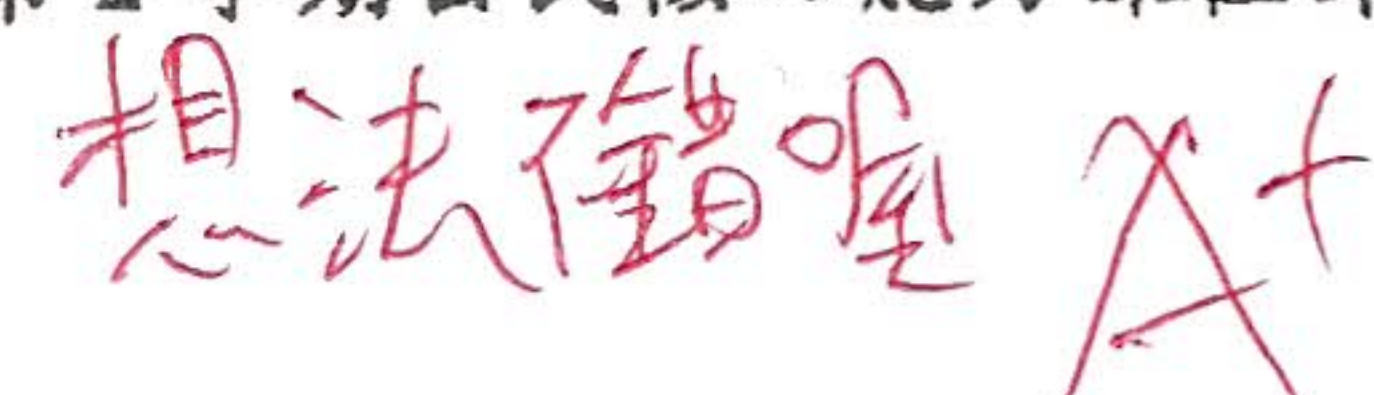 想法不錯喔 A+